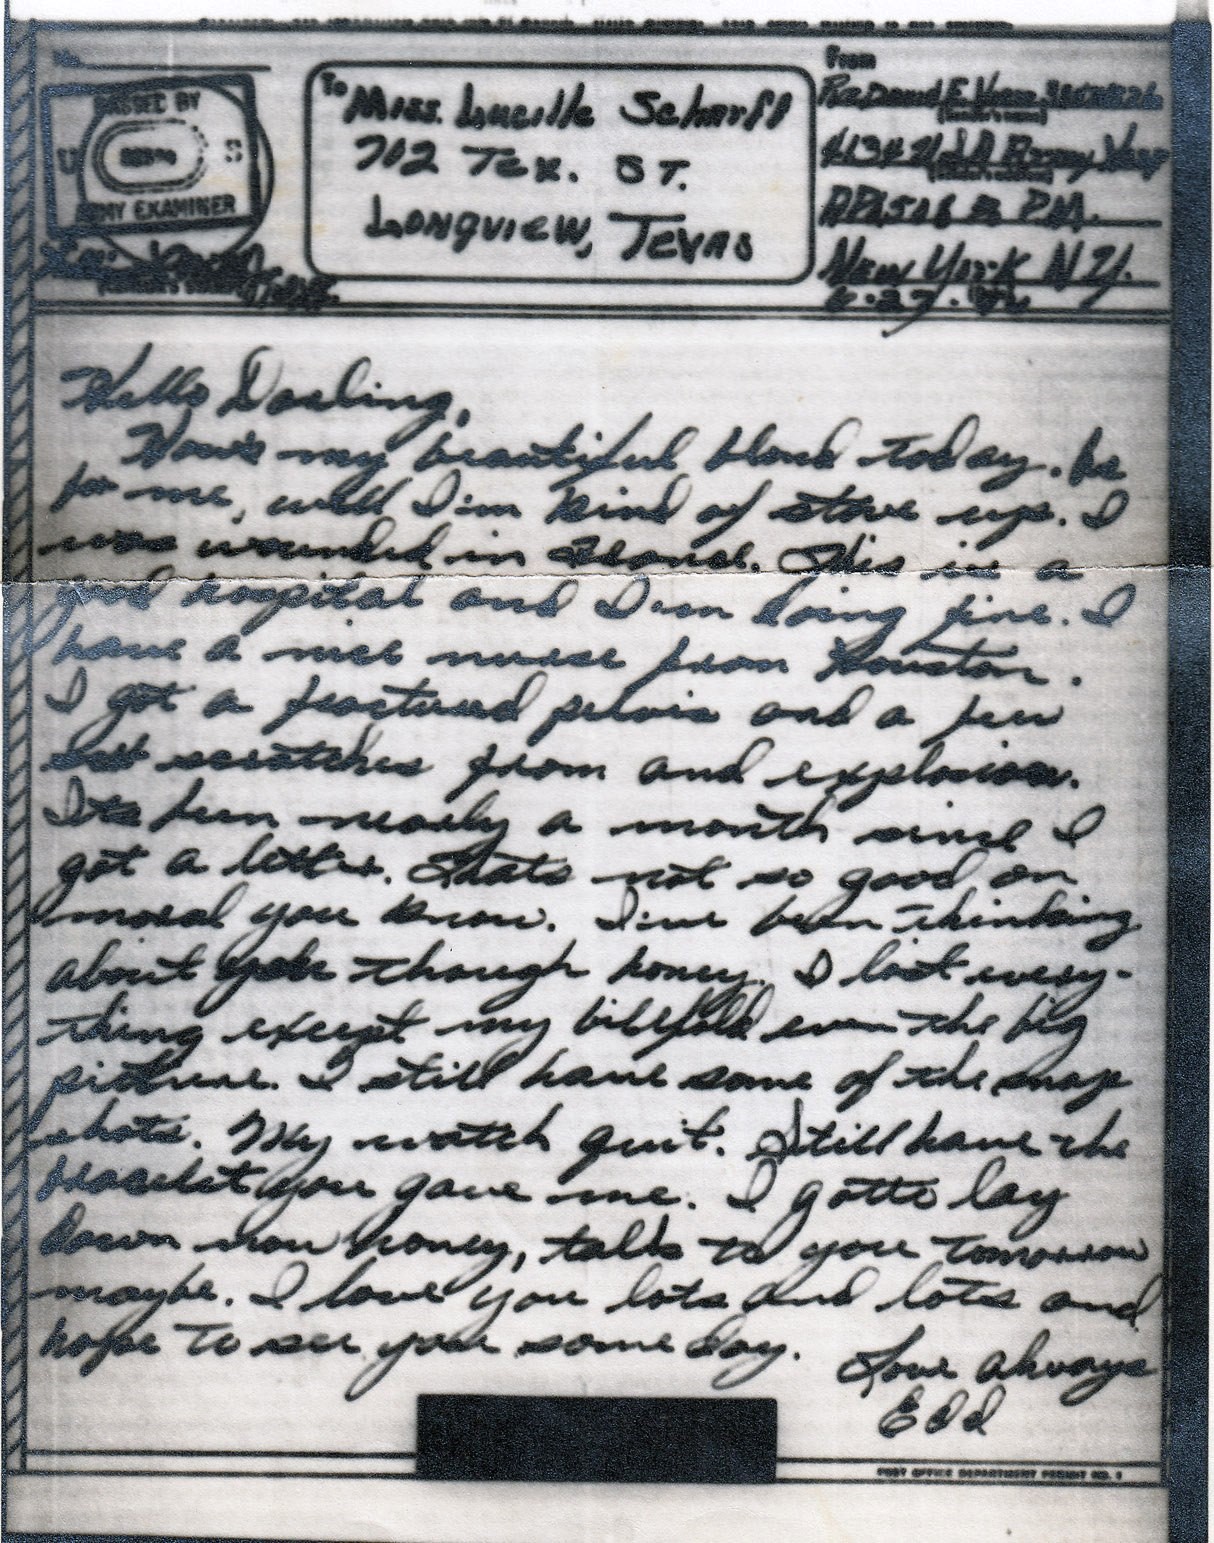 No.
PASSED BY
U S
ARMY EXAMINER
To
Miss. Lucille Scharff
702 Tex. St.
Longview, Texas
From
Pvt. David E.
(Sender's name)
4134 U.S.A. Hosp.
(Sender's address)
APO 516 % P.M.
New York N.Y.
6-27-
Hello Darling,
How's my beautiful blond today. As
for me, well I'm kind of stove up. I
was wounded in France. This is a
good hospital and I'm doing fine. I
have a nice nurse from Houston.
I got a fractured pelvis and a few
scratches from and explosion.
Its been nearly a month since I
got a letter. Thats not so good on
moral you know. I've been thinking
about you though honey. I lost every-
thing except my billfold even the big
picture. I still have some of the snap
shots. My watch quit. Still have the
bracelet you gave me. I gotta lay
down now honey, talk to you tomorrow
maybe. I love you lots and lots and
hope to see you some day.
Love always
Edd
POST OFFICE DEPARTMENT PERMIT NO. 1